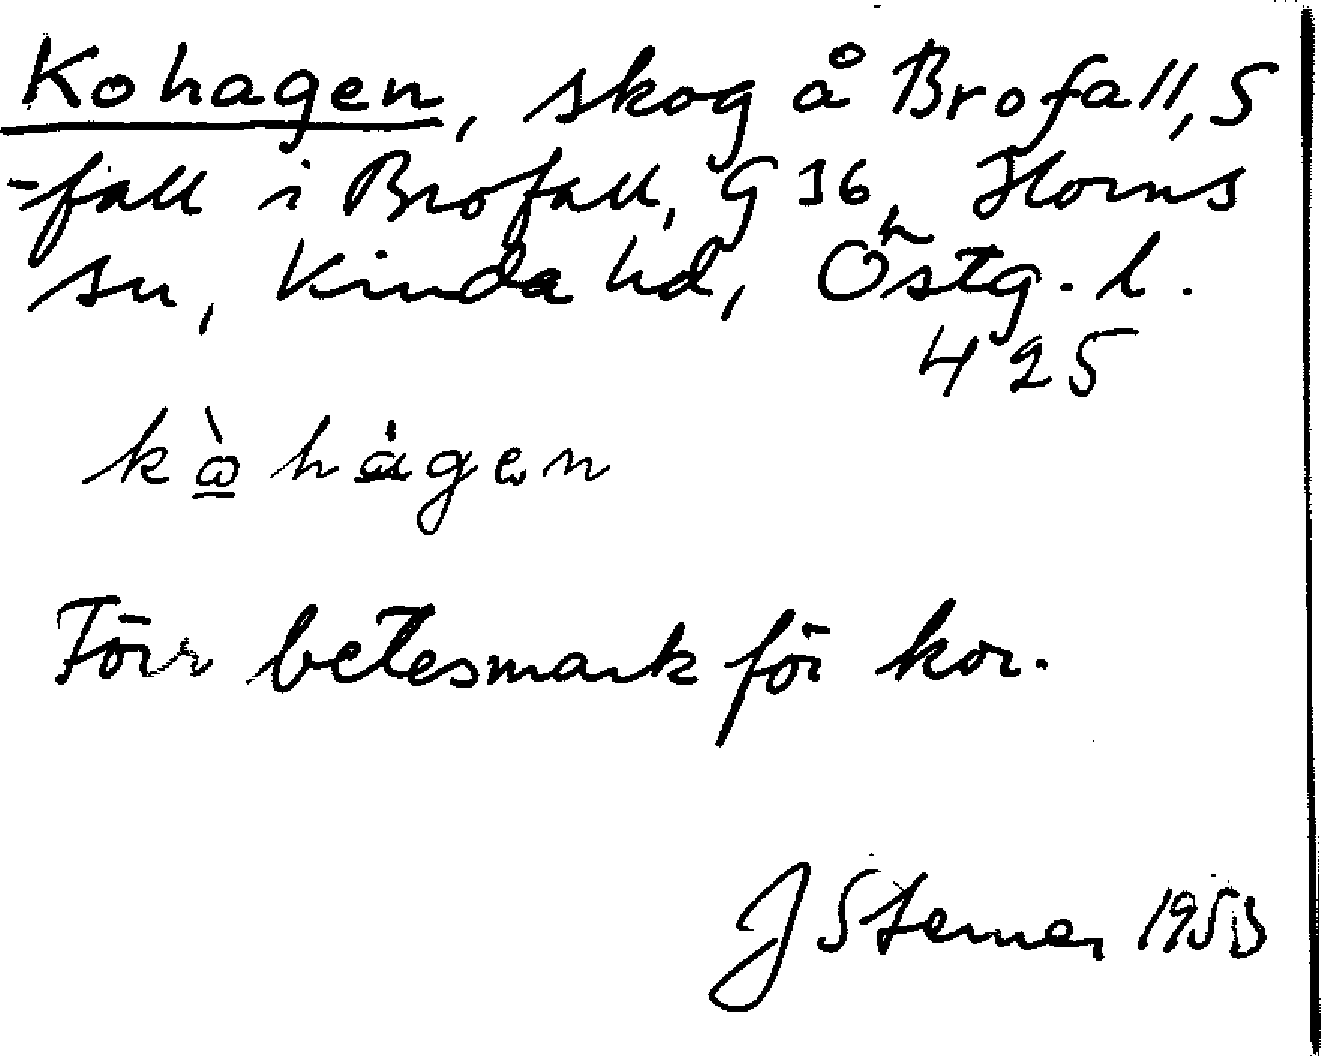 Kohagen, skog å Brofall, S
-fall i Brofall, G 16, Horns
sn, Kinda hd, Östg. l.
425
kὼ hágen
Förr betesmark för kor.
J Sterner 1953